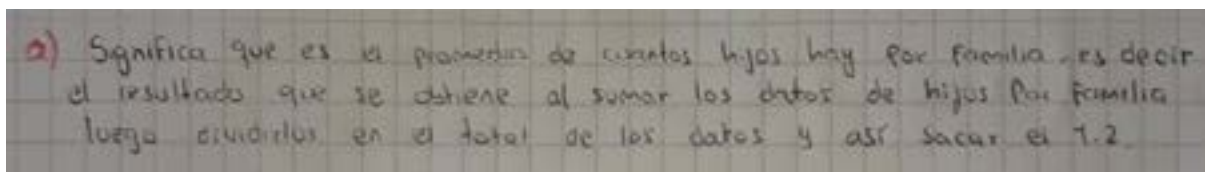 a) Significa que es el promedio de cuantos hijos hay por familia, es decir
el resultado que se obtiene al sumar los datos de hijos por familia
luego dividirlos en el total de los datos y así sacar el 1.2